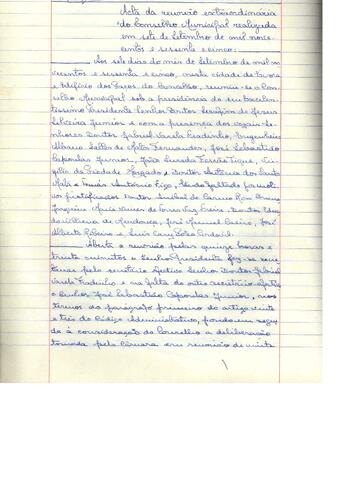 Acta da reunião extraordinária
do Conselho Municipal realizada
em sete de Setembro de mil nove-
centos e sessenta e cinco:
Aos sete dias do mês de Setembro de mil no-
vecentos e sessenta e cinco, nesta cidade de
e Edifício dos Paços do Concelho, reuniu-se o Con-
selho Municipal sob a presidência do seu Excelen-
tíssimo Presidente Senhor Doutor de Jesus
Silveira Junior e com a presença dos vogais Se-
nhores Doutor Gabriel Varela Fradinho, Engenheiro
de Matos Fernandes, José Sebastião
Capoulas Junior, João
da Piedade Morgado e Doutor António dos Santos
e António Figo, tendo faltado por moti-
vos justificados Doutor do Carmo
Joaquim Nunes de Torres Vaz Freire, Doutor
de Mendonça, José Manuel Casimiro, José
Alberto Ribeiro e Luís
Aberta a reunião pelas quinze horas e
trinta minutos o Senhor Presidente fez-se secre-
tariar pelo secretário efectivo Senhor Doutor Gabriel
Varela Fradinho e na falta do outro secretário efectivo
o Senhor José Sebastião Capoulas Junior, nos
termos do parágrafo primeiro do artigo vinte
e três do Código Administrativo, pondo em segui-
da à consideração do Conselho a deliberação
tomada pela Câmara em reunião de vinte